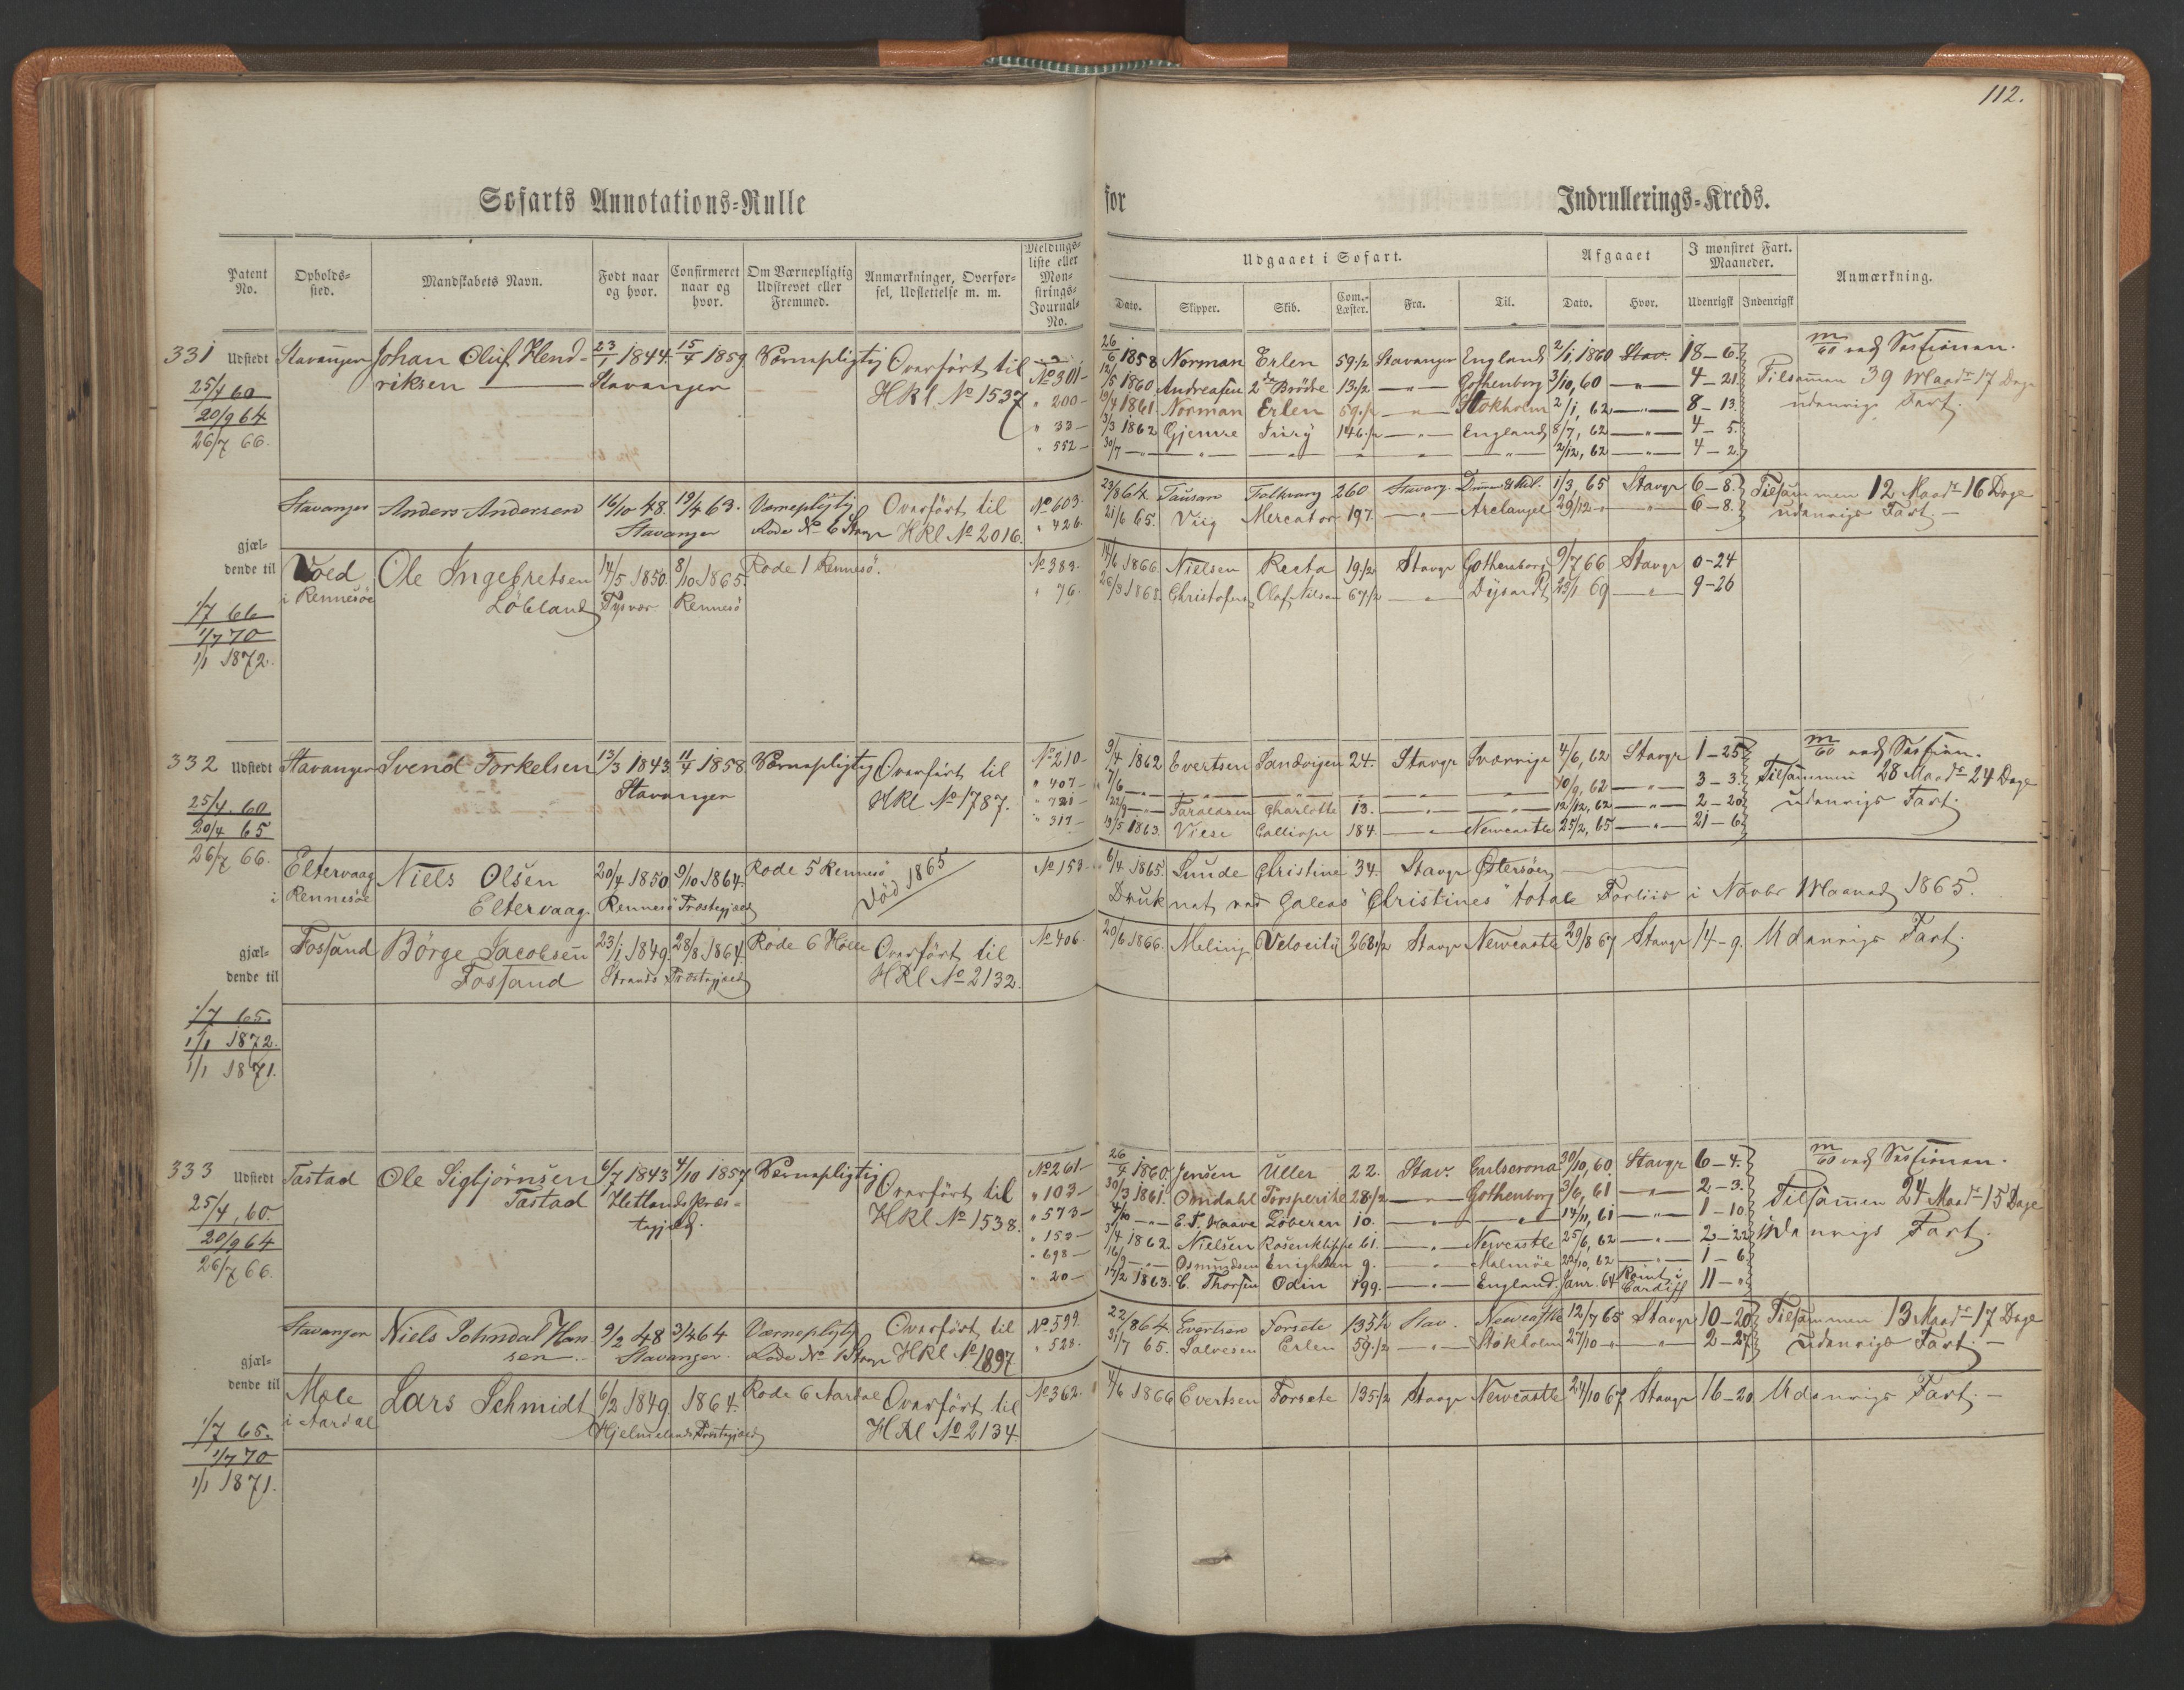 112.
Søfarts Annotations-Rulle for Indrullerings-Kreds.
Patent No. Opholds-sted. Mandskabets Navn. Født naar og hvor. Confirmeret naar og hvor. Om Værnepligtig Udskrevet eller Fremmed. Anmærkninger, Overførsel, Udslettelse m. m. Meldings-liste eller Mon-strings-Journal-No.
Udgaaet i Søfart. Afgaaet I mønstret Fart. Maaneder. Anmærkning.
Dato. Skipper. Skib. Com.-Læster. Fra. Til. Dato. Hvor. Udenrigsk Indenrigsk
331 Udstedt Stavanger Johan Oluf Hend- 23/1 1844. 15/4 1859. Værnepligtig Overført til No 301 26/6 1858 Norman Erlen 59 1/2 Stavanger England 2/1, 1860 Stav. 18-6. m/60 ved Sessionen.
25/4 60 riksen Stavanger HKl No 1537 " 200 12/5 1860 Andreasen 2de Brødre 13 1/2 " Gothenborg 3/10, 60 " 4-21 Tilsammen 39 Maadr 17 Dage
20/9 64 " 33 19/4 1861. Norman Erlen 59 1/2 " Stokholm 2/1, 62 " 8-13 udenrigs Fart.
26/7 66. 3/3 1862 Gjemre Jury 146 1/2 " England 8/7, 62 " 4-5
" 552 30/7 " " " " " 2/12, 62 " 4-2
Stavanger Anders Andersen 16/10 48. 19/4 63. Værnepligtig Overført til No 603. 23/8 64. Tausan Folkvang 260 Stavang. 1/3, 65 Stavgr 6-8. Tilsammen 12 Maadr 16 Dage
Stavanger Rode No 6 Stavgr HKl No 2016. " 426. 21/6 65. Viig Mercator 197. " Archangel 29/12 " " 6-8. udenrigs Fart.
gjæl-
dende til Voed Ole Ingebretsen 14/5 1850. 8/10 1865. Rode 1 Rennesø. No 383. 14/6 1866. Nielsen Recta 19 1/2 Stavgr Gothenborg 9/7 66 Stavgr 0-24
i Rennesøe Løbland Tysvær Rennesø " 76. 26/3 1868. Christofers. Olaf Nilsen 67 1/2 " Dysart 23/1 69 " 9-26
1/7 66
1/7 70
1/1 1872.
332 Udstedt Stavanger Svend Torkelsen 13/3 1843. 11/4 1858 Værnepligtig Overført til No 210 3/4 1862 Evertsen Sandvigen 24. Stavgr Sverrige 4/6, 62 Stavgr 1-25 m/60 ved Session.
25/4. 60 Stavanger HKl No 1787. " 407 7/6 " " " " " " 10/9, 62 " 3-3. Tilsammen 28 Maadr 24 Dage
20/4 65 " 721 22/9 " Faraldsen Charlotte 13. " " 12/12, 62 " 2-20 udenrigs Fart.
26/7 66. " 317 19/5 1863. Viese Calliope 184. " Newcastle 25/2, 65 " 21-6
Eltervaag Niels Olsen 20/4 1850. 9/10 1864. Rode 5 Rennesø No 153 6/4 1865. Lunde Christine 34. Stavgr Østersøen
i Rennesøe Eltervaag. Rennesø Præstegjæld Død 1865 Druknet ved Galeas "Christines" totale Forliis i Novbr Maaned 1865.
gjæl-
dende til Fossand Børge Jacobsen 23/1 1849. 28/8 1864. Rode 6 Holle Overført til No 406. 20/6 1866. Meling Velocity 268 1/2 Stavgr Newcastle 29/8 67 Stavgr 14-9. Udenrigs Fart.
Fossand Strands Præstegjæld HKl No 2132.
1/7 65.
1/1 1872.
1/1 1871.
333 Udstedt Tastad Ole Sigbjørnsen 6/7 1843 4/10 1857 Værnepligtig Overført til No 261 26/4 1860. Jensen Uller 22. Stav. Carlscrona 30/10, 60 Stavgr 6-4. m/60 ved Sessionen.
25/4, 60. Tastad Hetlands Præs- HKl No 1538. " 103 30/3 1861. Omdahl 28 1/2 " Gothenborg 3/6, 61 " 2-3. Tilsammen 24 Maadr 15 Dage
20/9 64 tegjæld. " 573 4/10 " E. T. Haave Løberen 10. " " 14/11, 61 " 1-10 udenrigs Fart.
26/7 66. " 152 3/4 1862. Nielsen Rosenklippe 61. " Newcastle 25/6, 62 " 2-22
" 698 16/9 " Osmundsen Enigheden 9. " Malmøe 22/10, 62 " 1-6
" 20 14/2 1863. C. Thorsen Odin 199. " England. Janr. 64 Rømt i Cardiff 11-"
Stavanger Niels Johndal Han 9/2 48 3/4 64 Værnepligtig Overført til No 599. 22/8 64. Evertsen Forsete 135 1/2 Stav. Newcastle 12/7 65 Stavgr 10-20 Tilsammen 13 Maadr 17 Dage
sen Stavanger. Rode No 1 Stavgr HKl No 1897 " 528. 31/7 65. Salvesen Erlen 59 1/2 " Stokholm 27/10 " " 2-27 udenrigs Fart
gjæl-
dende til Mæle Lars Schmidt 6/2 1849 1864. Rode 6 Aardal Overført til No 362. 4/6 1866 Evertsen Forsete 135 1/2 Stavgr Newcastle 24/10 67 Stavgr 16-20 Udenrigs Fart.
i Aardal Hjelmelands Præstegjæld HKl No 2134.
1/7 65.
1/7 70
1/1 1871.